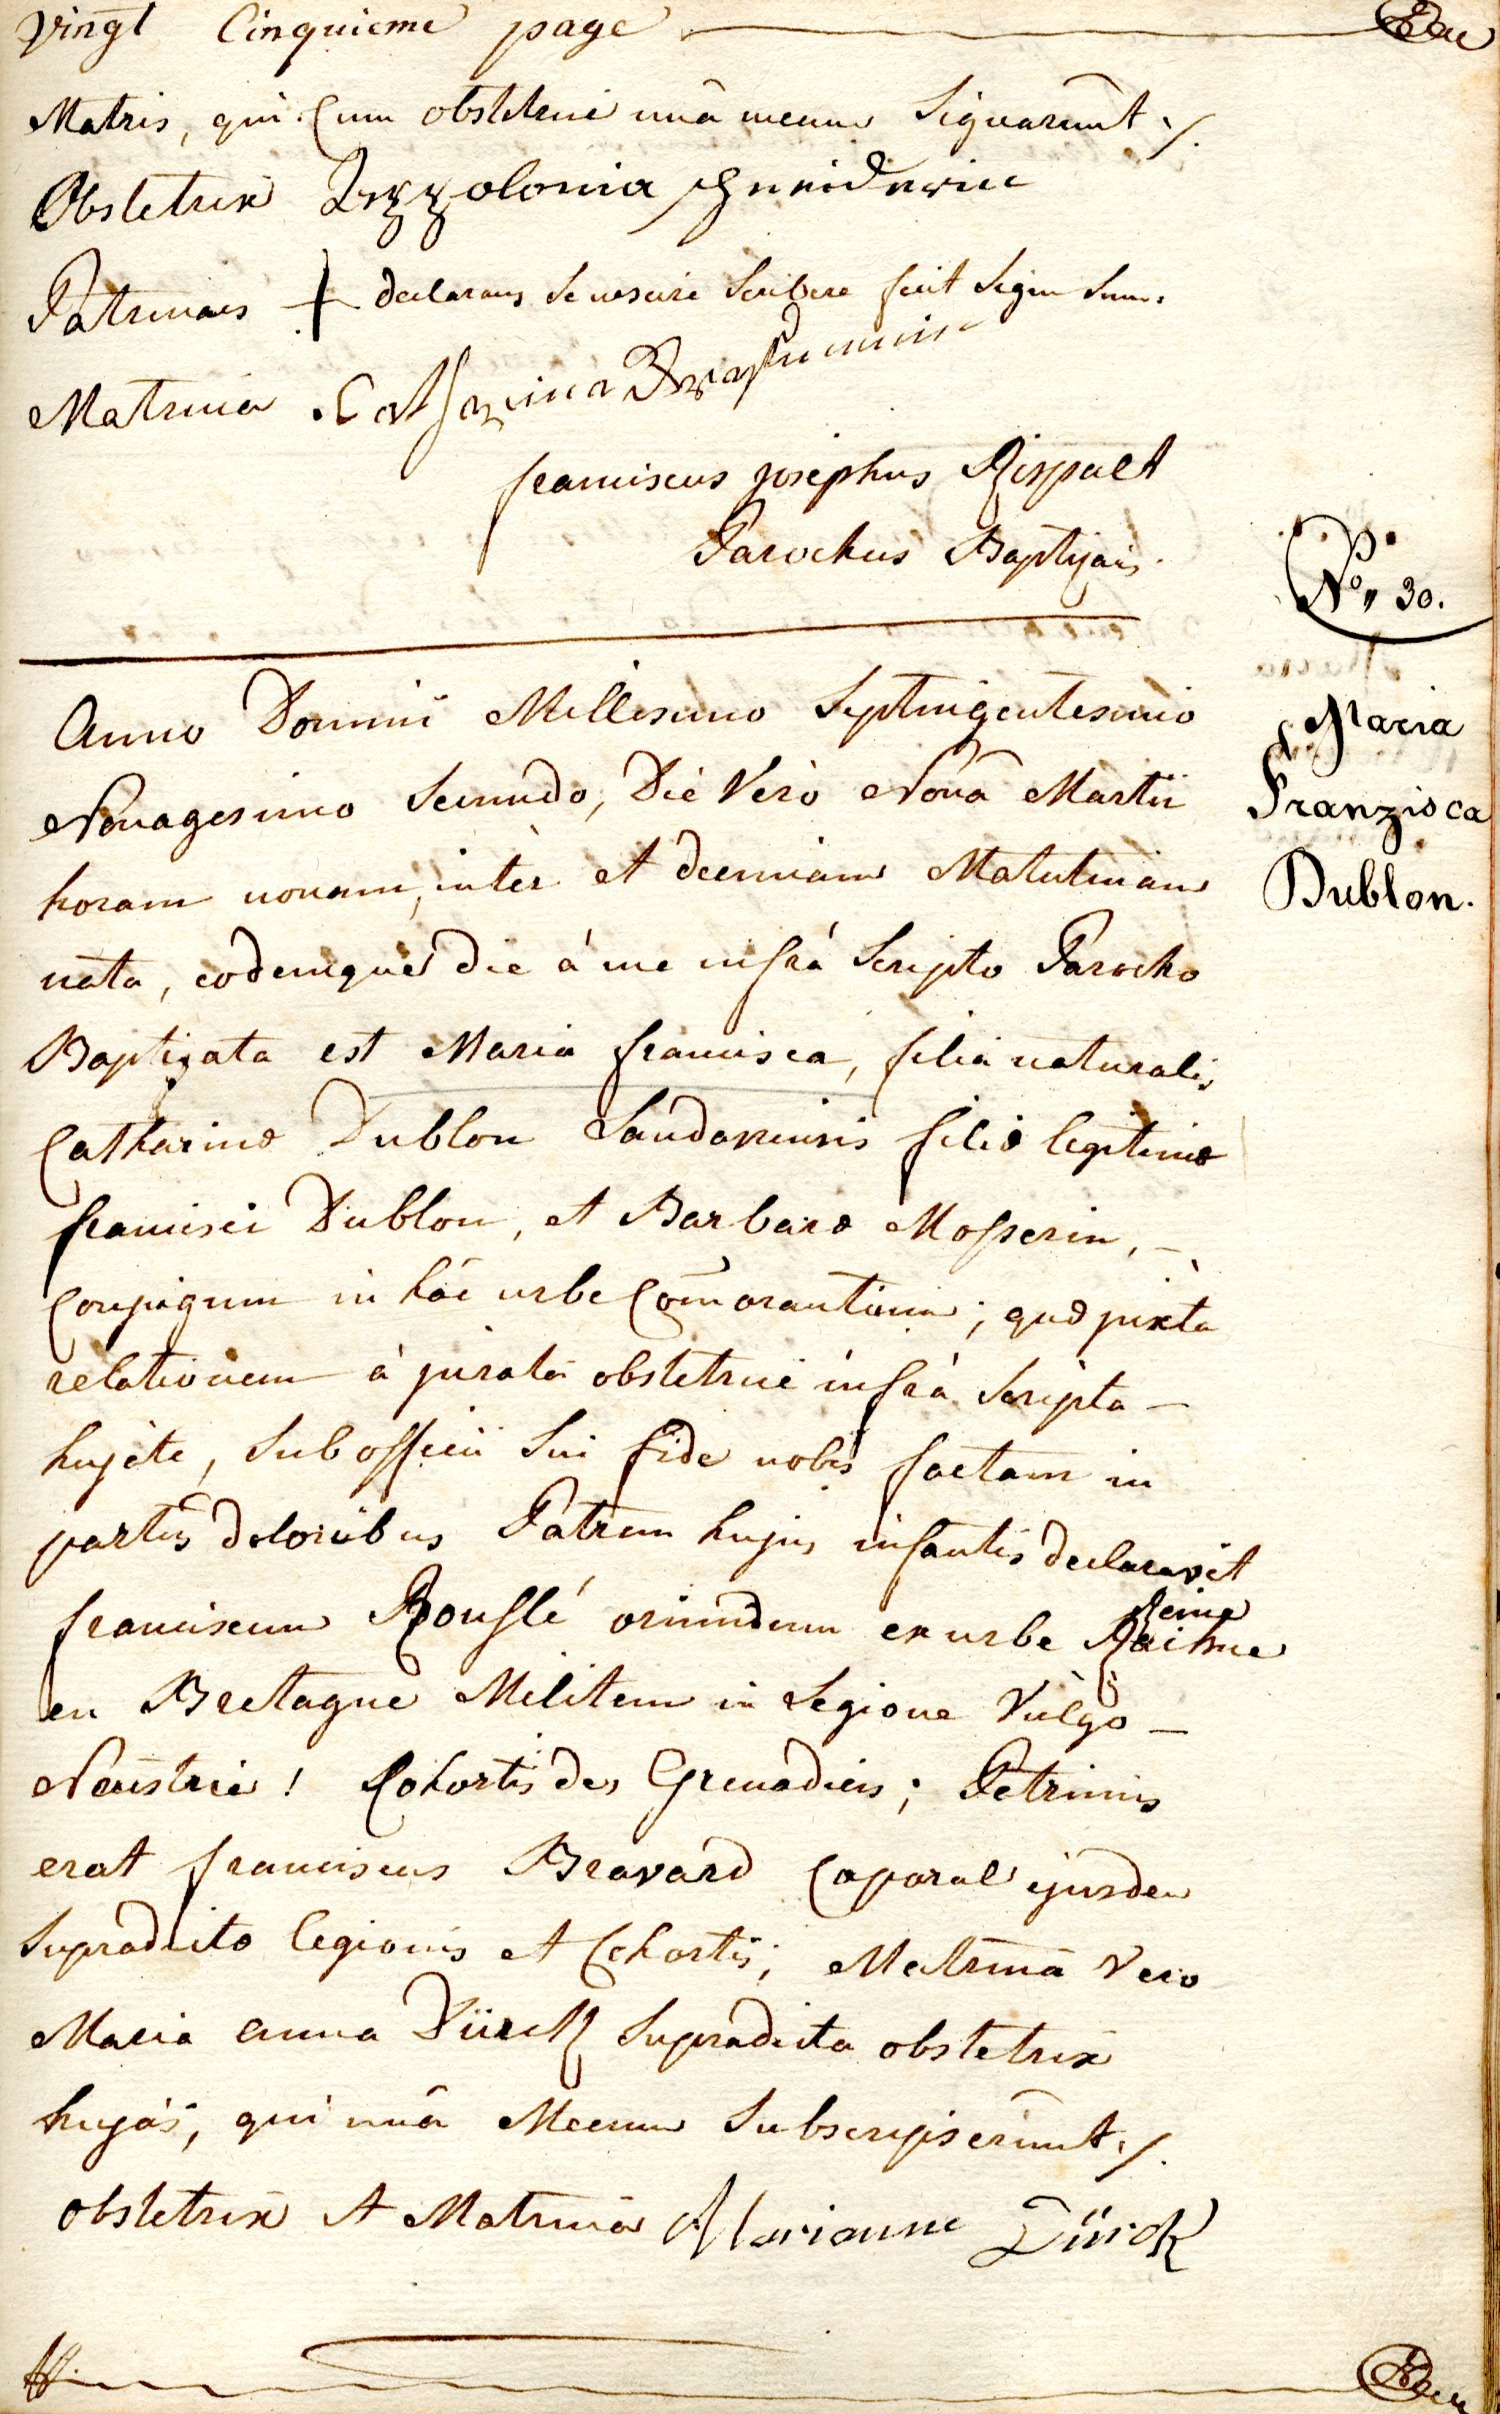 Vingt Cinquieme page
Matris, qui Cum obstetrice unâ mecum Signarunt ./.
Obstetrix Apolonia Schneiderin
Patrinus + declarans se nescire scribere fecit Signum Suum.
Matrina Catharina
franciscus josephus Rispalt
Parochus Baptizans.
No,, 30.
Maria
Franzisca
Dublon.
Anno Domini Millesimo Septingentesimo
Nonagesimo Secundo, Die Verò Nonâ Martii
horam nonam, inter et decimam Matutinam
nata, eodemque die á me infrá Scripto Parocho
Baptizata est Maria francisca, filia naturalis
Catharinæ Dublon Landaviensis filiæ legitimæ
francisci Dublon, et Barbaræ Mosserin, –
Conjugum in hâc urbe Com̄orantium; quæ juxta
relationem à jurata obstetrice infrà Scripta –
hujate, Sub officii Sui fide nobis factam in
partus doloribus Patrem hujus infantis declaravit
franciscum Rouflé oriundum ex urbe Reine
en Bretagne Militem in Legione Vulgò –
Neustrie! Cohortis des Grenadiers; Patrinus
erat franciscus Bravard Caporal ejusdem
Supradictæ legionis et Cohortis; Matrina Vero
Maria anna Dürck Supradicta obstetrix
hujas, qui unâ Mecum Subscripserunt ./.
obstetrix et Matrina Marianne Dürck